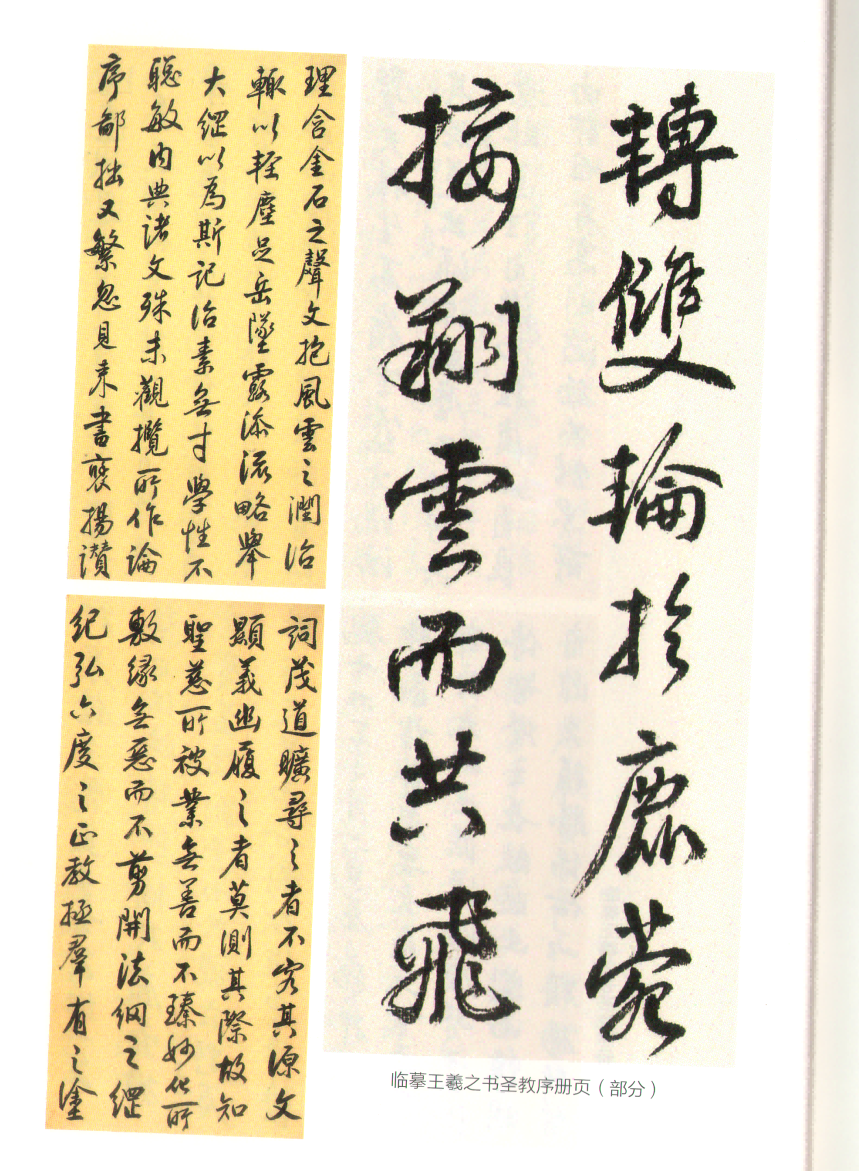 轉雙輪於鹿菀
接翔雲而共飛
理含金石之聲文抱風雲之潤治
輒以輕塵足岳墜露添流略舉
大綱以為斯記治素無才學性不
聰敏內典諸文殊未觀攬所作論
序鄙拙又繁忽見來書褒揚讚
詞茂道曠尋之者不究其源文
顯義幽履之者莫測其際故知
聖慈所被業無善而不臻妙化所
敷緣無惡而不剪開法網之綱
紀弘六度之正教拯羣有之塗
临摹王羲之书圣教序册页（部分）